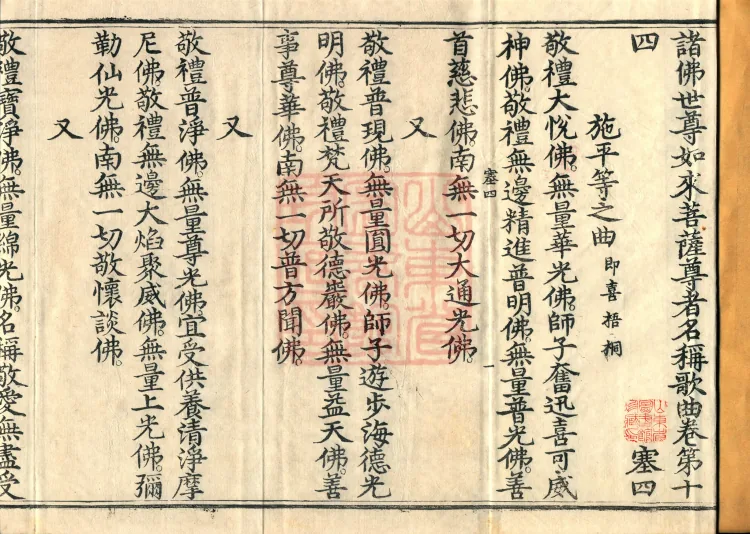 諸佛世尊如來菩薩尊者名稱歌曲卷第十
四 塞四
施平等之曲 即喜梧桐
敬禮大悅佛。無量華光佛。師子奮迅喜可威
神佛。敬禮無邊精進普明佛。無量普光佛。善
塞四 一
首慈悲佛。南無一切大通光佛。
又
敬禮普現佛。無量圓光佛。師子遊步海德光
明佛。敬禮梵天所敬德嚴佛。無量益天佛。善
事尊華佛。南無一切普方聞佛。
又
敬禮普淨佛。無量尊光佛。宜受供養清淨摩
尼佛。敬禮無邊大焰聚威佛。無量上光佛。彌
勒仙光佛。南無一切敬懷談佛。
又
敬禮寶淨佛。無量綿光佛。名稱敬愛無盡受